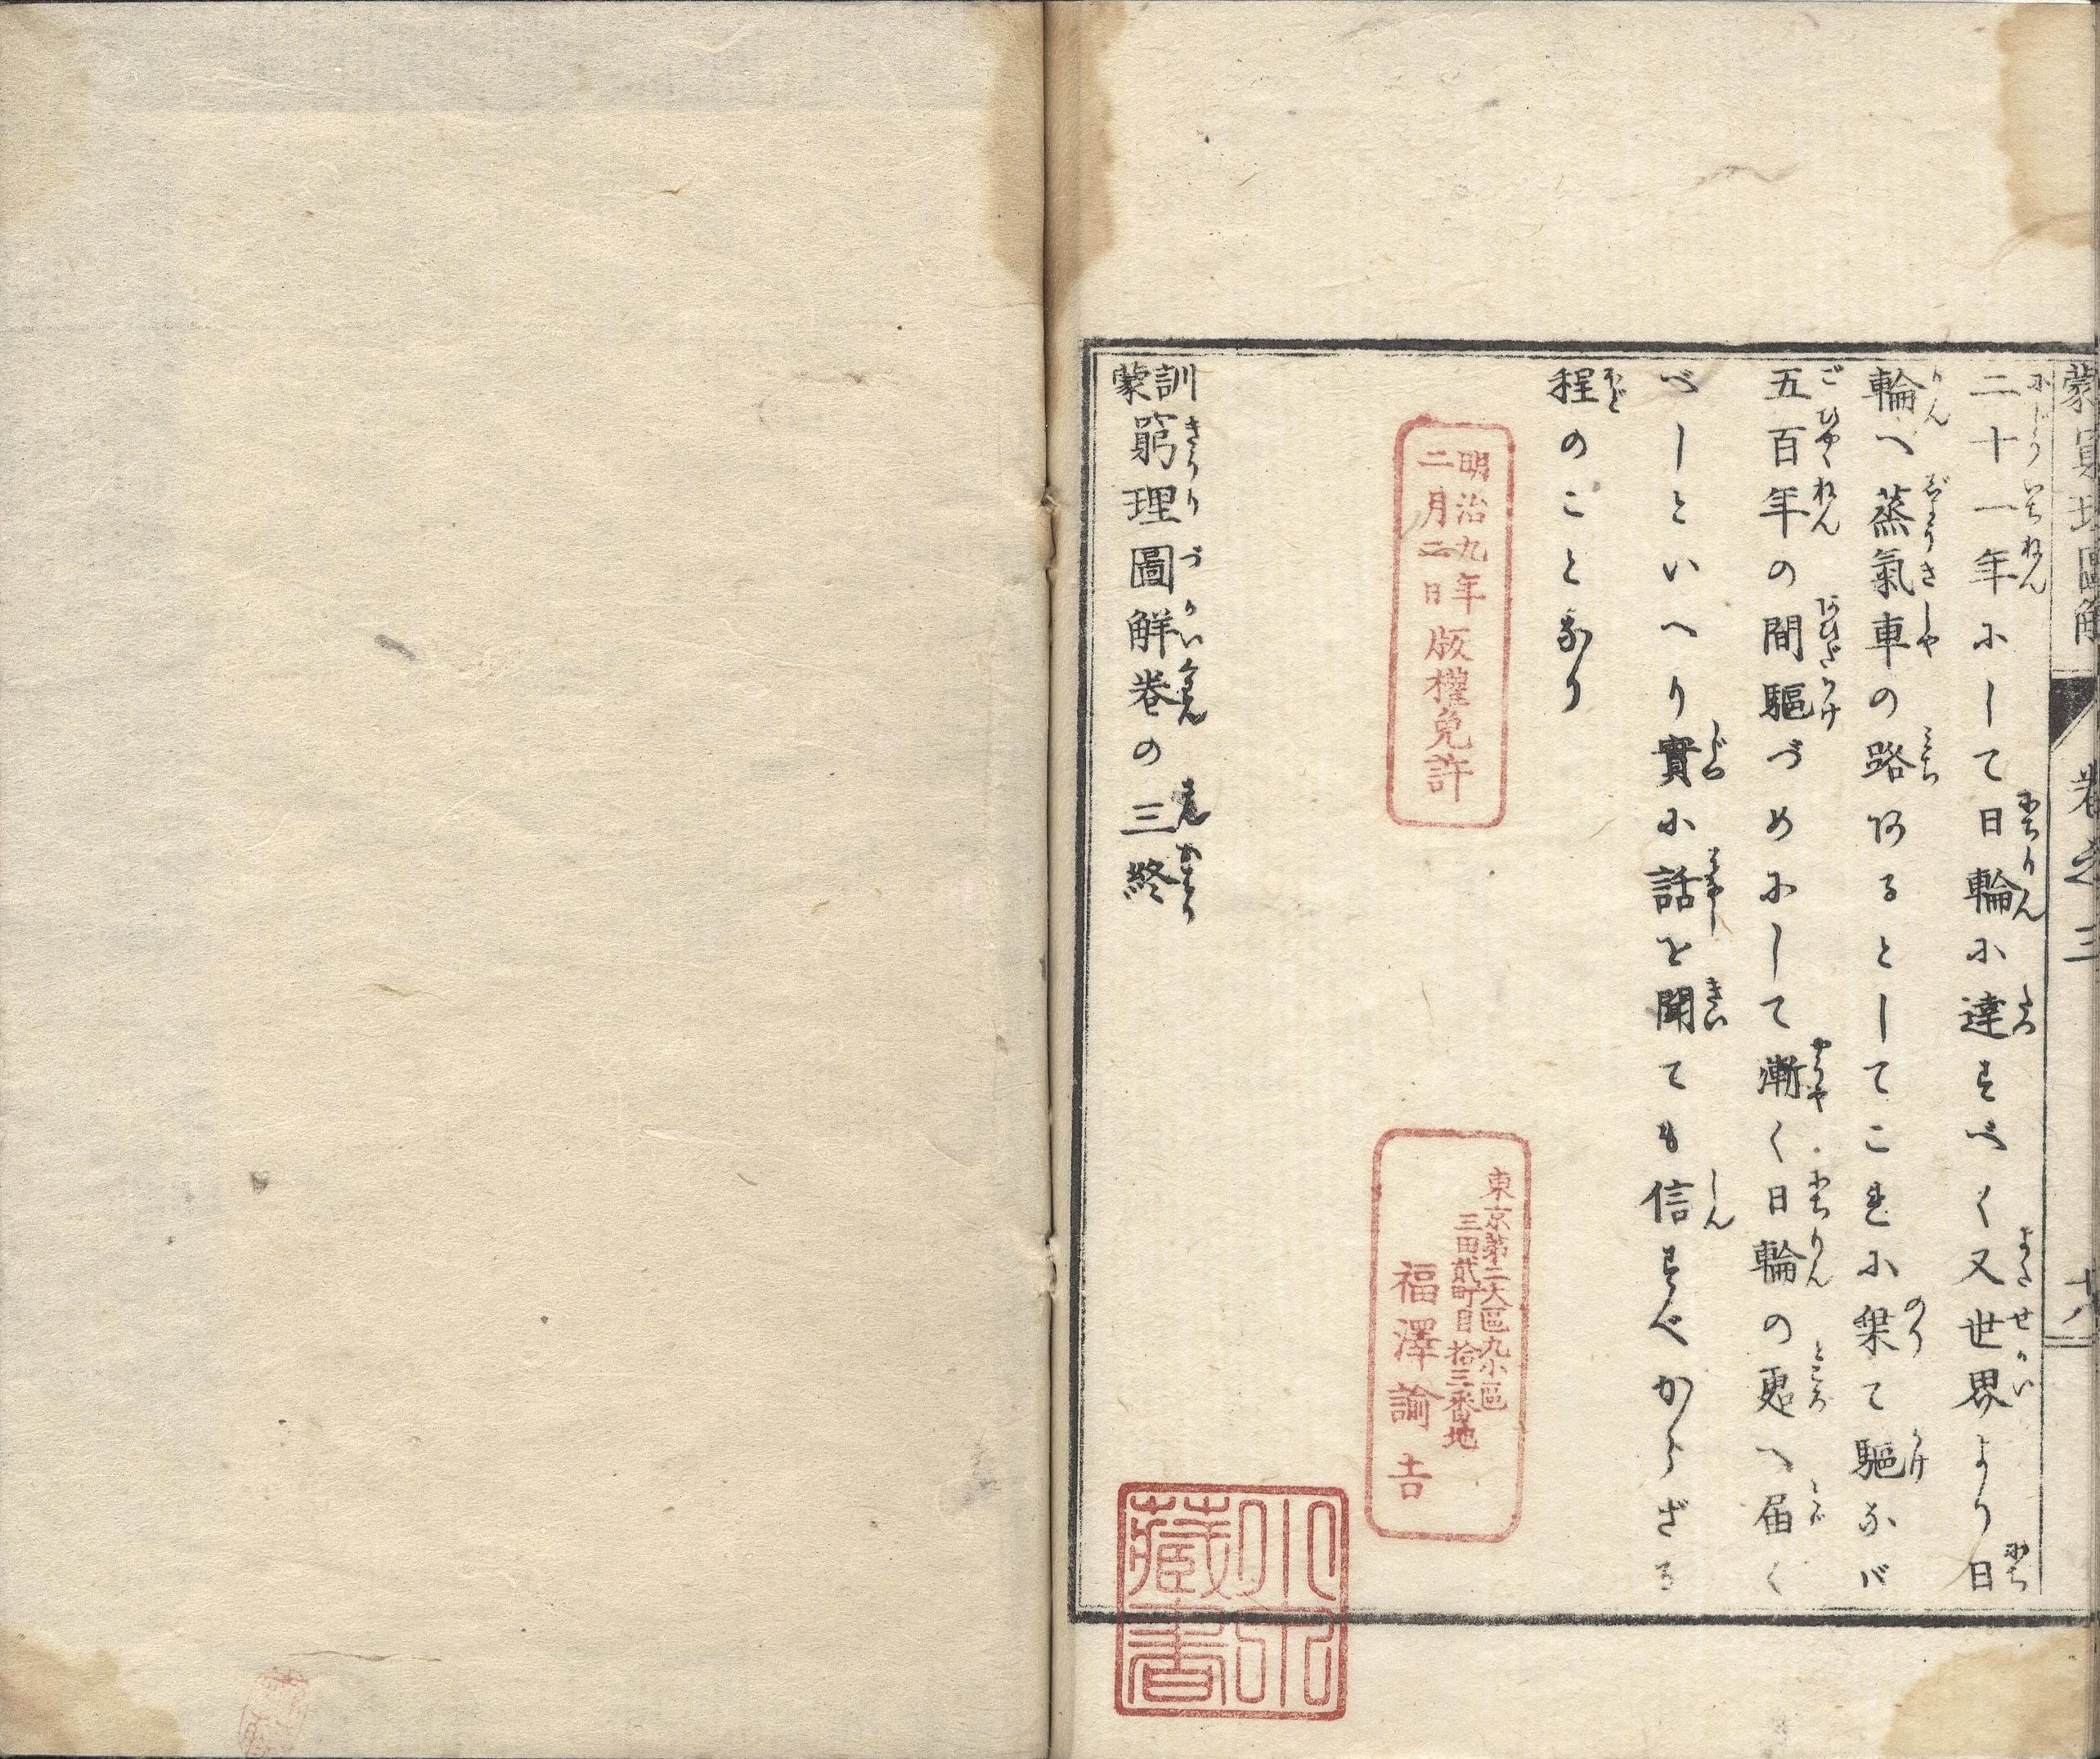 二十一年にして日輪に達すべく又世界より日
輪へ蒸氣車の路あるとしてこれに乗て駆なば
五百年の間駆づめにして漸く日輪の処へ届く
べしといへり實に話を聞ても信ずべからざる
程のことなり
明治九年
二月二日
版權免許
東京第二大區九小區
三田貳町目拾三番地
福澤諭吉
訓蒙窮理圖解卷の三終
藏書